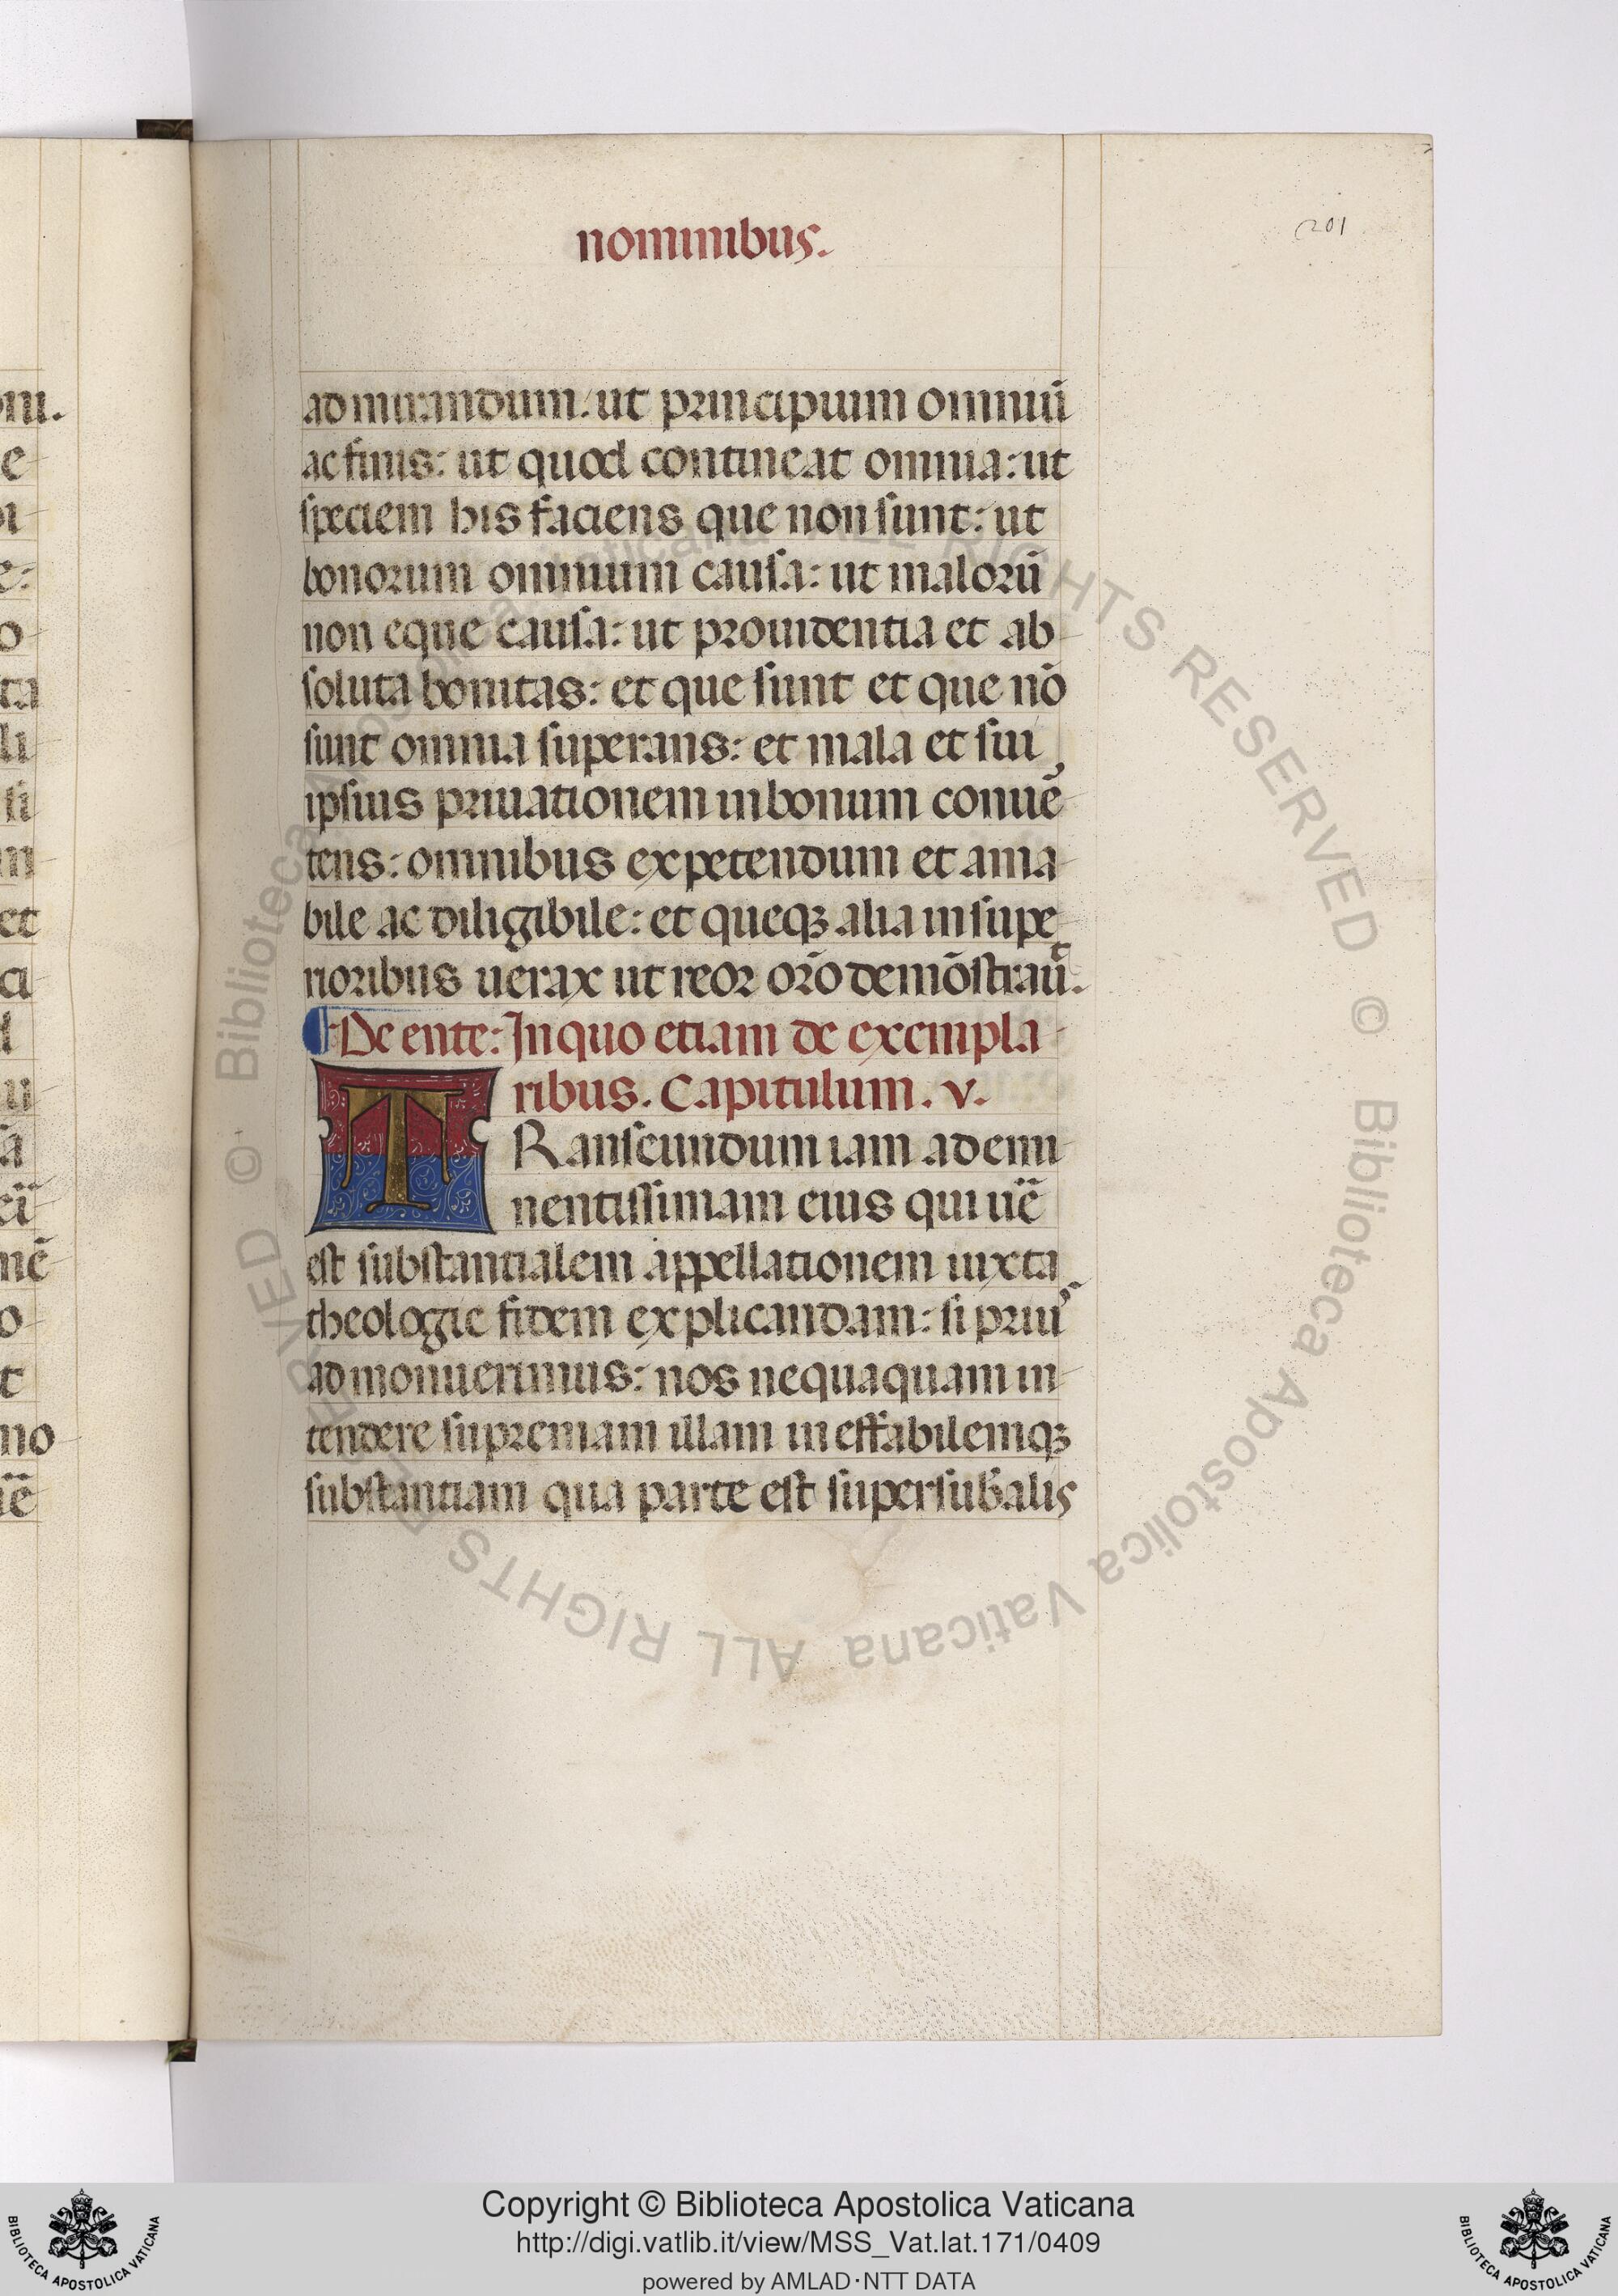 nominibus.
201
admirandum: ut principium omniū
ac finis: ut quod contineat omnia: ut
speciem his faciens que non sunt: ut
bonorum omnium causa: ut malorū
non eque causa: ut prouidentia et ab
soluta bonitas: et que sunt et que nō
sunt omnia superans: et mala et sui
ipsius priuationem in bonum conuē
tens: omnibus expetendum et ama
bile ac diligibile: et queqꝫ alia in supe
rioribus uerax ut reor orō demōstrauͭ.
¶ De ente: In quo etiam de exempla
ribus. Capitulum. v.
TRanseundum iam ad emi
nentissimam eius qui uē
est substantialem appellationem iuxta
theologie fidem explicandam: si priuꝰ
admonuerimus: nos nequaquam in
tendere supremam illam ineffabilemqꝫ
substantiam qua parte est supersub̄alis
Copyright © Biblioteca Apostolica Vaticana
http://digi.vatlib.it/view/MSS_Vat.lat.171/0409
powered by AMLAD·NTT DATA
BIBLIOTECA APOSTOLICA VATICANA
BIBLIOTECA APOSTOLICA VATICANA
© Biblioteca Apostolica Vaticana ALL RIGHTS RESERVED © Biblioteca Apostolica Vaticana ALL RIGHTS RESERVED